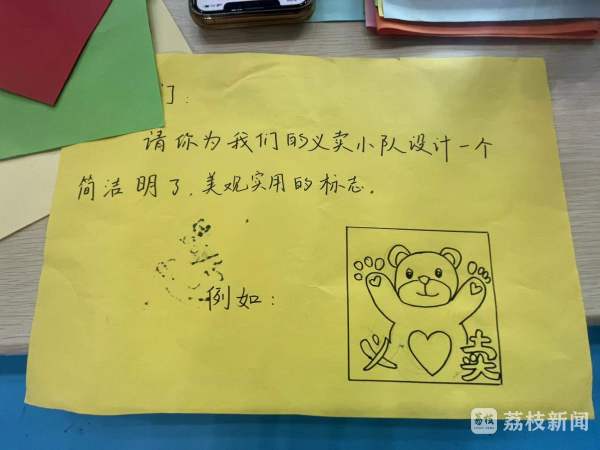 们：
请你为我们的义卖小队设计一个
简洁明了、美观实用的标志。
例如：
义 卖
荔枝 荔枝新闻